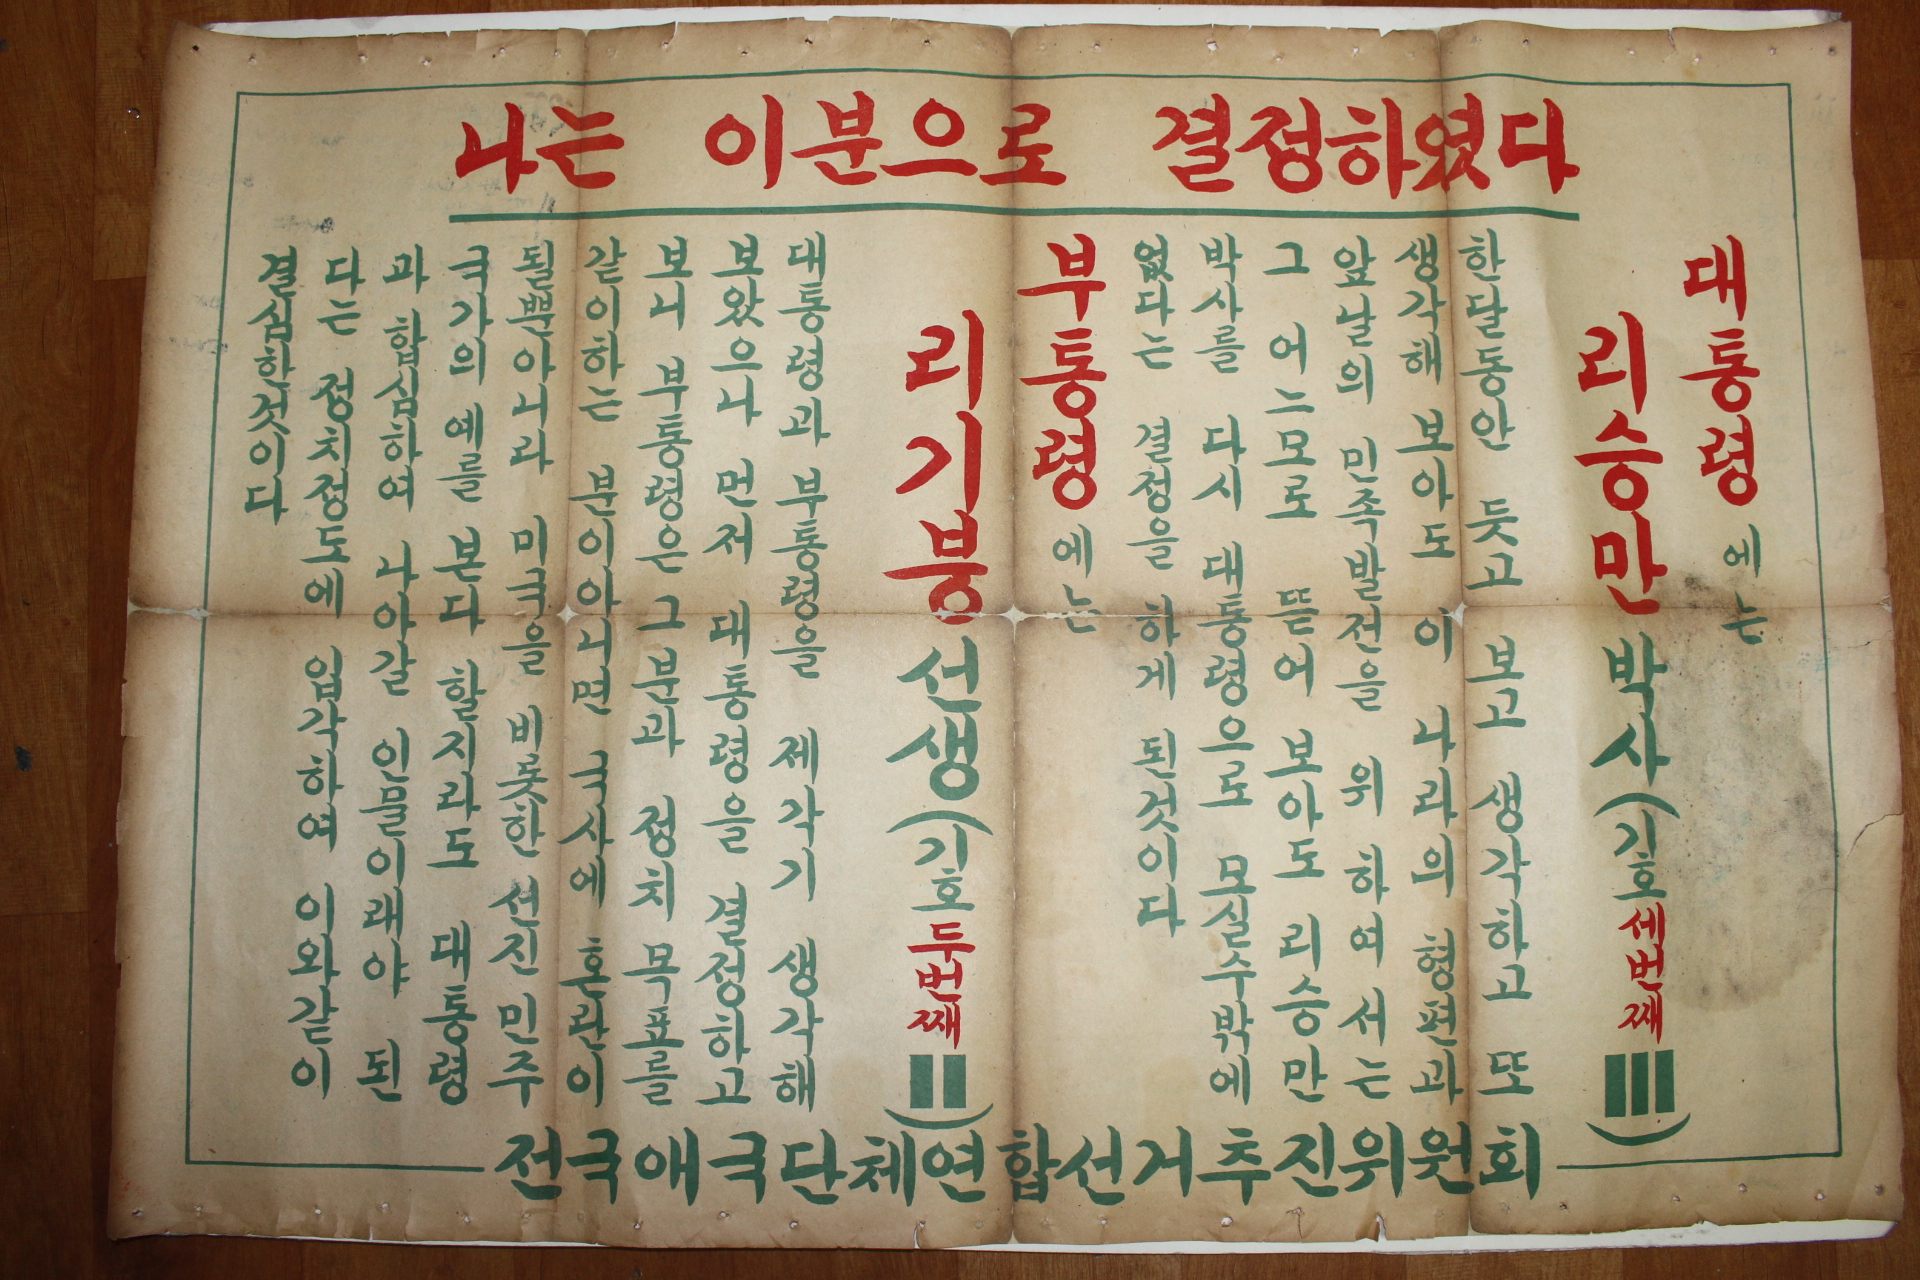 나는 이분으로 결정하였다
대통령에는
리승만 박사 (기호 세번째 III)
한달동안 듯고 보고 생각하고 또
생각해 보아도 이 나라의 형편과
앞날의 민족발전을 위하여서는
그 어느모로 뜯어 보아도 리승만
박사를 다시 대통령으로 모실수밖에
없다는 결정을 하게 된것이다
부통령에는
리기붕 선생 (기호 두번째 II)
대통령과 부통령을 제각기 생각해
보았으나 먼저 대통령을 결정하고
보니 부통령은 그분과 정치 목표를
같이하는 분이아니면 국사에 혼란이
될뿐아니라 미국을 비롯한 선진 민주
국가의 예를 본다 할지라도 대통령
과 합심하여 나아갈 인물이래야 된
다는 정치정도에 입각하여 이와같이
결심한것이다
전국애국단체연합선거추진위원회